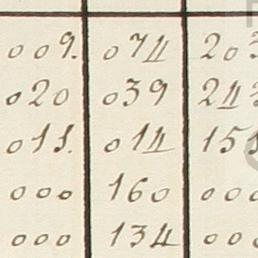 009. 074 203
020 039 243
011. 014 151
000 160 000
000 134 000